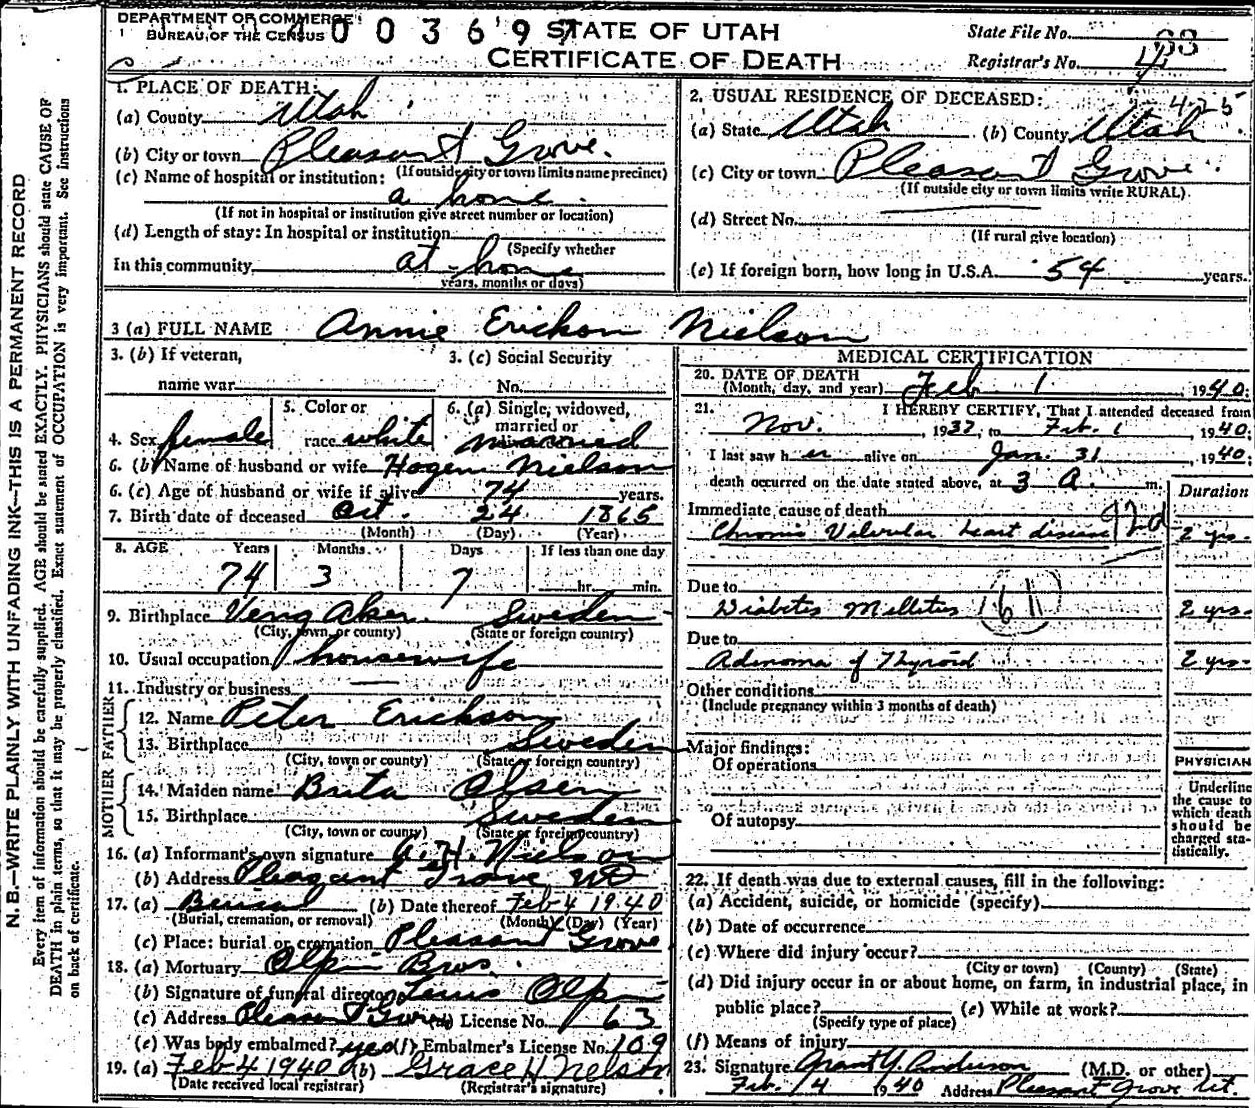 DEPARTMENT OF COMMERCE
BUREAU OF THE CENSUS
0 0 3 6 9 7
STATE OF UTAH
CERTIFICATE OF DEATH
State File No. 63
Registrar's No. 4
425
1. PLACE OF DEATH:
(a) County Utah
(b) City or town Pleasant Grove.
(If outside city or town limits name precinct)
(c) Name of hospital or institution:
a home.
(If not in hospital or institution give street number or location)
(d) Length of stay: In hospital or institution
(Specify whether
In this community at home
years, months or days)
2. USUAL RESIDENCE OF DECEASED:
(a) State Utah (b) County Utah
(c) City or town Pleasant Grove.
(If outside city or town limits write RURAL)
(d) Street No.
(If rural give location)
(e) If foreign born, how long in U.S.A. 54 years.
3 (a) FULL NAME Annie Erickson Nielson
3. (b) If veteran,
name war
3. (c) Social Security
No.
4. Sex female
5. Color or
race white
6. (a) Single, widowed,
married or
married
6. (b) Name of husband or wife Hogen Nielson
6. (c) Age of husband or wife if alive 74 years.
7. Birth date of deceased Oct. 24 1865
(Month) (Day) (Year)
8. AGE Years Months Days If less than one day
74 3 7 hr. min.
9. Birthplace Veng Aker. Sweden
(City, town, or county) (State or foreign country)
10. Usual occupation housewife
11. Industry or business
FATHER
12. Name Peter Erickson
13. Birthplace Sweden
(City, town or county) (State or foreign country)
MOTHER
14. Maiden name Brita Olsen
15. Birthplace Sweden
(City, town or county) (State or foreign country)
16. (a) Informant's own signature A. H. Nielson
(b) Address Pleasant Grove
17. (a) Burial (b) Date thereof Feb 4 1940
(Burial, cremation, or removal) (Month) (Day) (Year)
(c) Place: burial or cremation Pleasant Grove
18. (a) Mortuary Olpin Bros.
(b) Signature of funeral director Lewis Olpin
(c) Address Pleasant Grove License No. 63
(e) Was body embalmed? yes (f) Embalmer's License No. 109
19. (a) Feb 4 1940 (b) Grace H Nelson
(Date received local registrar) (Registrar's signature)
MEDICAL CERTIFICATION
20. DATE OF DEATH
(Month, day, and year) Feb 1 1940.
21. I HEREBY CERTIFY, That I attended deceased from
Nov. , 1937, to Feb. 1 , 1940.
I last saw her alive on Jan. 31 , 1940.
death occurred on the date stated above, at 3 A. m.
Duration
Immediate cause of death 92d
Chronic Valvular heart disease 2 yrs.
Due to
Diabetes Mellitus 61 2 yrs.
Due to
Adenoma of Thyroid 2 yrs.
Other conditions
(Include pregnancy within 3 months of death)
Major findings:
Of operations
Of autopsy
PHYSICIAN
Underline
the cause to
which death
should be
charged sta-
tistically.
22. If death was due to external causes, fill in the following:
(a) Accident, suicide, or homicide (specify)
(b) Date of occurrence
(c) Where did injury occur?
(City or town) (County) (State)
(d) Did injury occur in or about home, on farm, in industrial place, in
public place? (e) While at work?
(Specify type of place)
(f) Means of injury
23. Signature Grant Y. Anderson (M.D. or other)
Feb. 4 1940 Address Pleasant Grove Ut.
N. B.—WRITE PLAINLY WITH UNFADING INK—THIS IS A PERMANENT RECORD
Every item of information should be carefully supplied. AGE should be stated EXACTLY. PHYSICIANS should state CAUSE OF
DEATH in plain terms, so that it may be properly classified. Exact statement of OCCUPATION is very important. See instructions
on back of certificate.